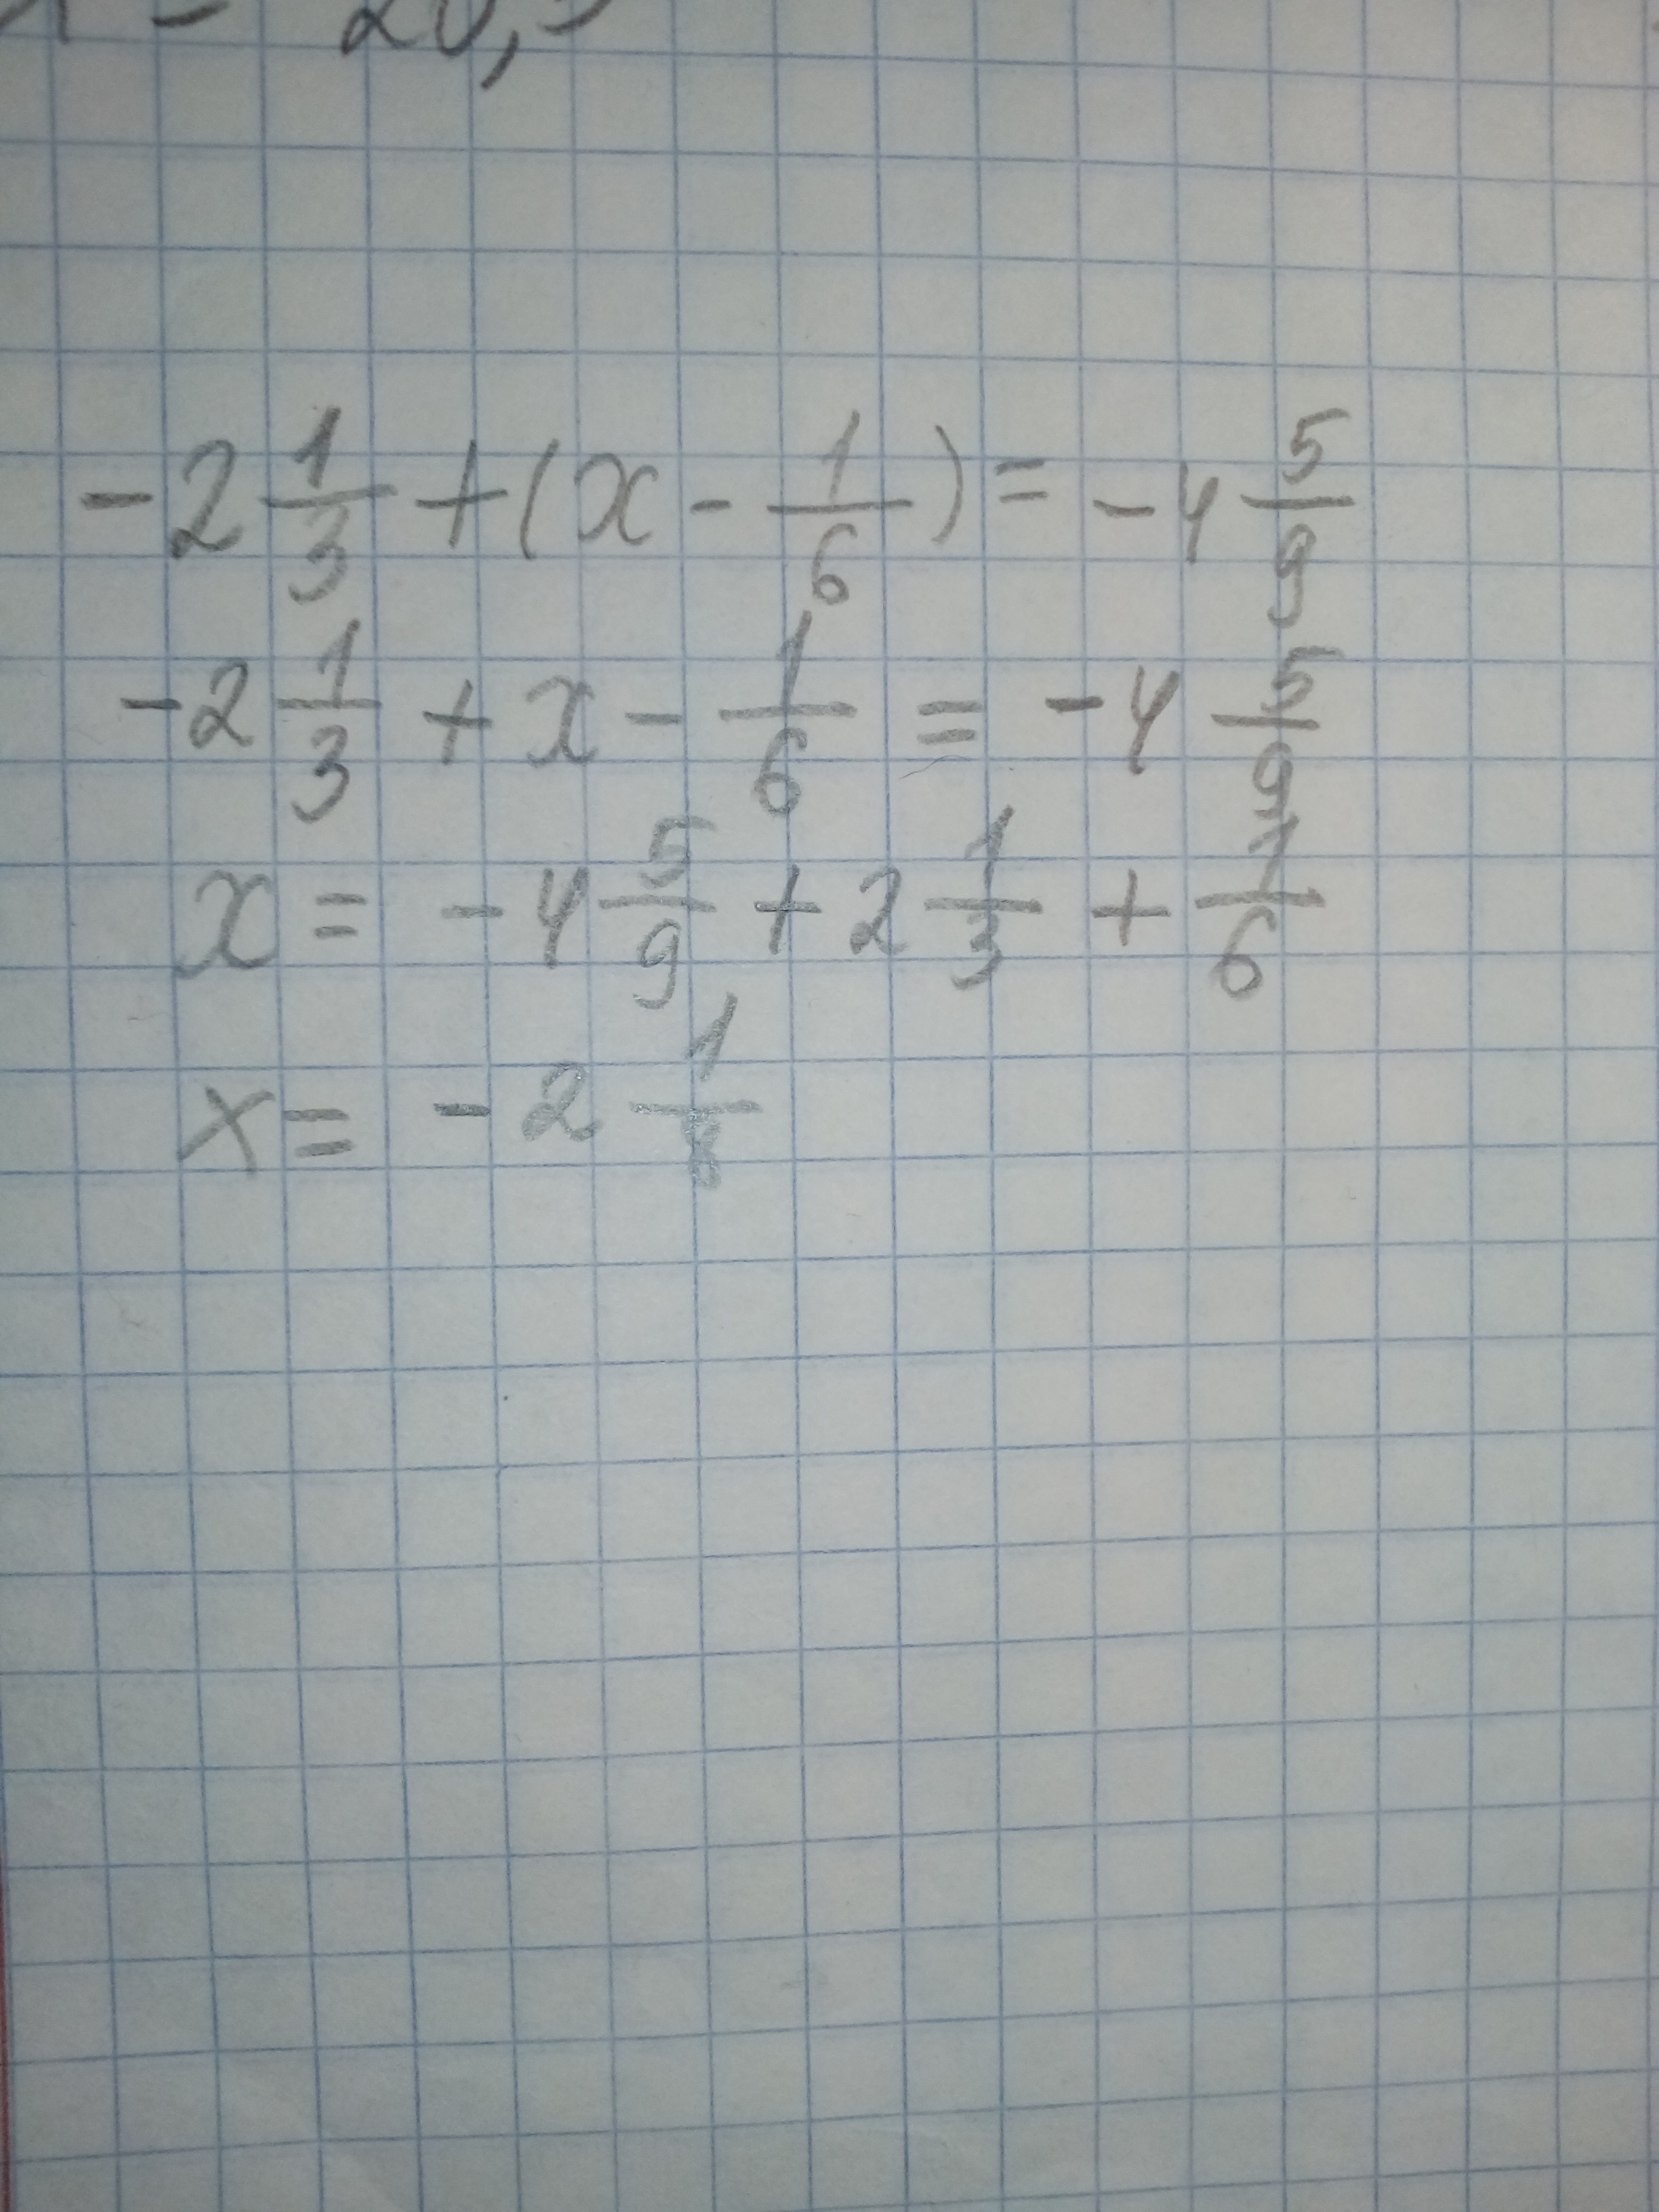 -2 1/3 + (x - 1/6) = -4 5/9
-2 1/3 + x - 1/6 = -4 5/9
x = -4 5/9 + 2 1/3 + 1/6
x = -2 1/8